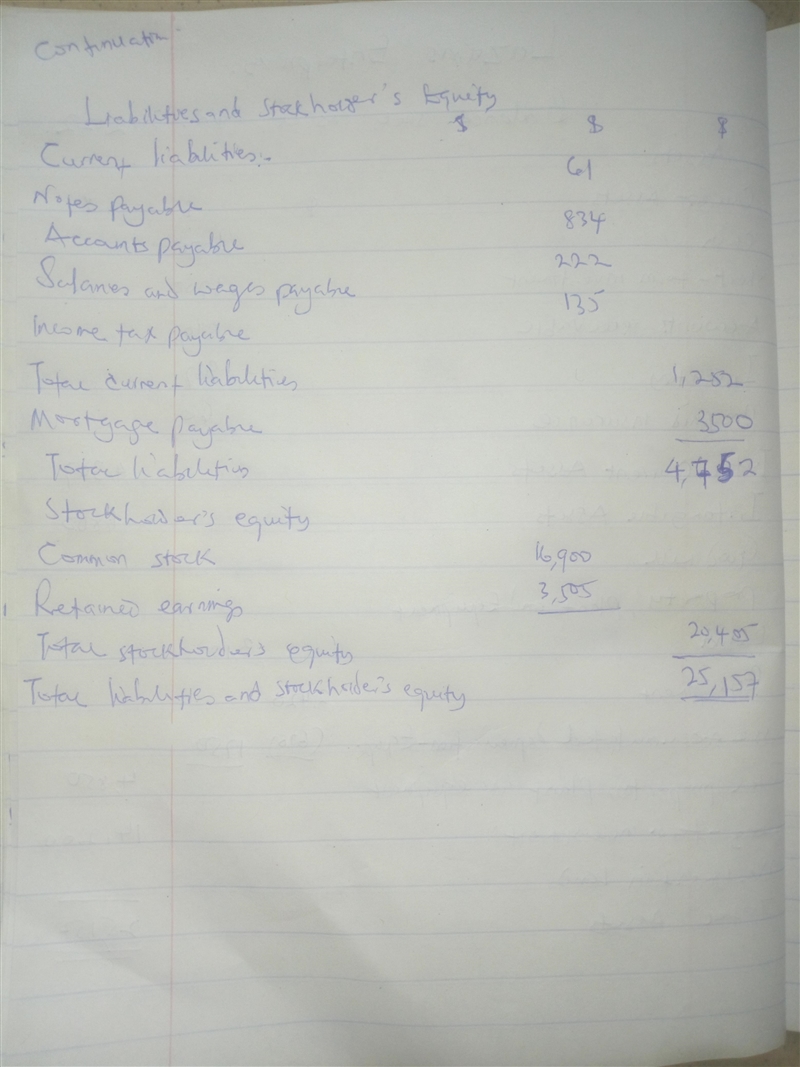 Continuation
Liabilities and Stockholder's Equity
$ $ $
Current liabilities:-
61
Notes payable
834
Accounts payable
222
Salaries and wages payable
135
Income tax payable
Total current liabilities 1,252
Mortgage payable 3500
Total liabilities 4,752
Stockholder's equity
Common stock 16,900
Retained earnings 3,505
Total stockholder's equity 20,405
Total liabilities and stockholder's equity 25,157